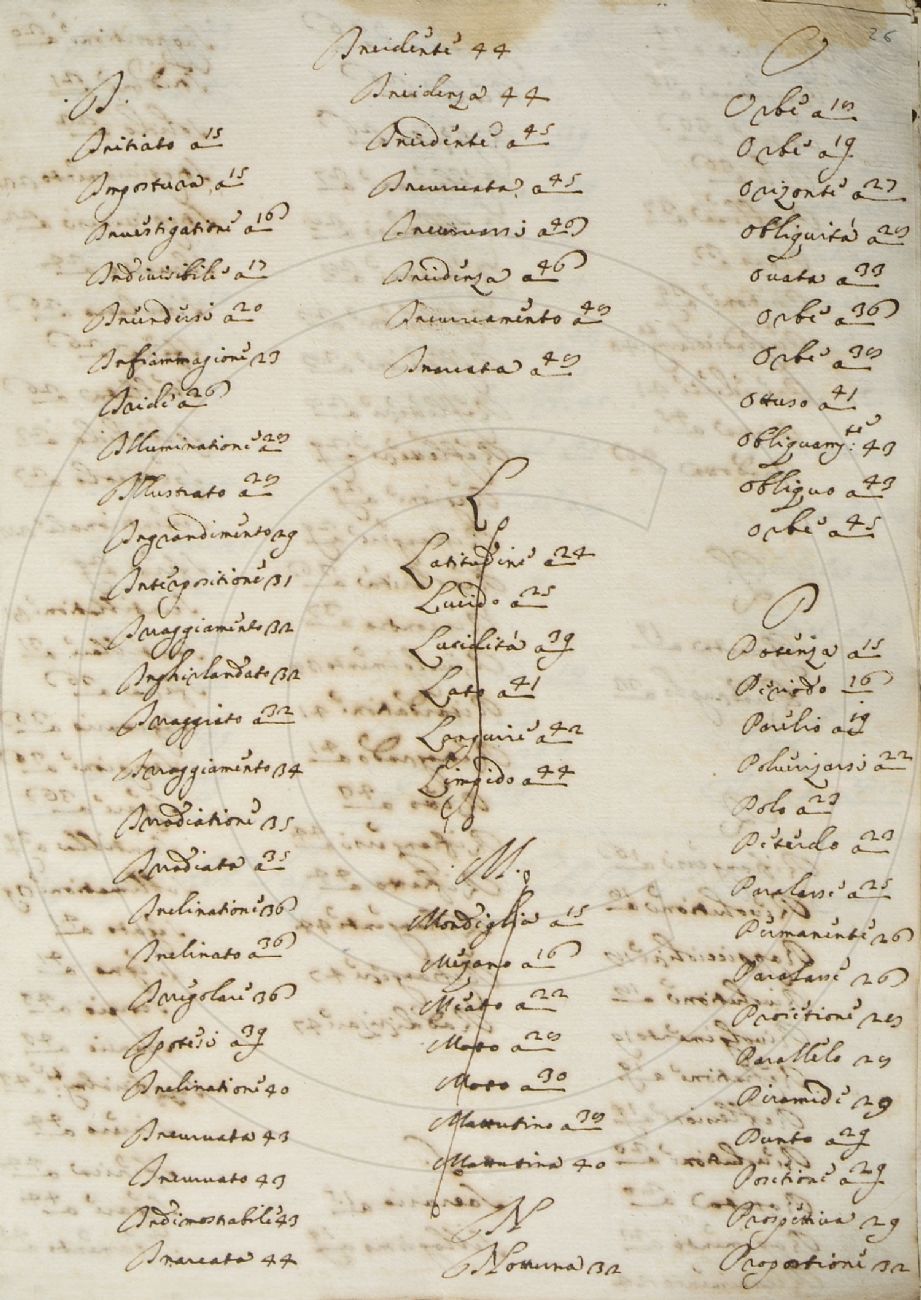 26
I.
Initiato a 15
Impostura a 15
Inuestigatione a 16
Indiuisibile a 17
Incendersi a 20
Infiammagione 23
Iride a 26
Illuminatione a 28
Illustrato a 28
Ingrandimento 29
Interpositione 31
Irraggiamento 32
Inghirlandato 32
Irraggiato a 32
Irraggiamento 34
Irradiatione 35
Irradiata a 35
Inclinatione 36
Inclinato a 36
Irregolare 36
Ipotesi a 39
Inclinatione 40
Incuruata 43
Incuruato 43
Indimostrabile 43
Inarcata 44
Incidente 44
Incidenza 44
Incidente a 45
Incuruata a 45
Incuruarsi a 46
Incidenza a 46
Incuruamento a 48
Inarcata a 48
L
Latitudine a 24
Lucido a 25
Lucidità a 39
Lato a 41
Languire a 42
Limpido a 44
M.
Mondiglia a 15
Mezano a 16
Meato a 22
Moto a 28
Moto a 30
Mattutino a 38
Mattutina 40
N
Notturna 32
O
Orbe a 18
Orbe a 19
Orizonte a 27
Obliquità a 28
Ouata a 33
Orbe a 36
Orbe a 38
Ottuso a 41
Obliquam.te 43
Obliquo a 43
Orbe a 45
P
Potenza a 15
Periodo 16
Parelio a 19
Poluerizarsi a 22
Polo a 23
Paralasse a 25
Permanente 26
Paralasse 26
Proietione 28
Parallelo 28
Piramide 29
Punto a 29
Positione a 29
Prospettiua 29
Proportione 32